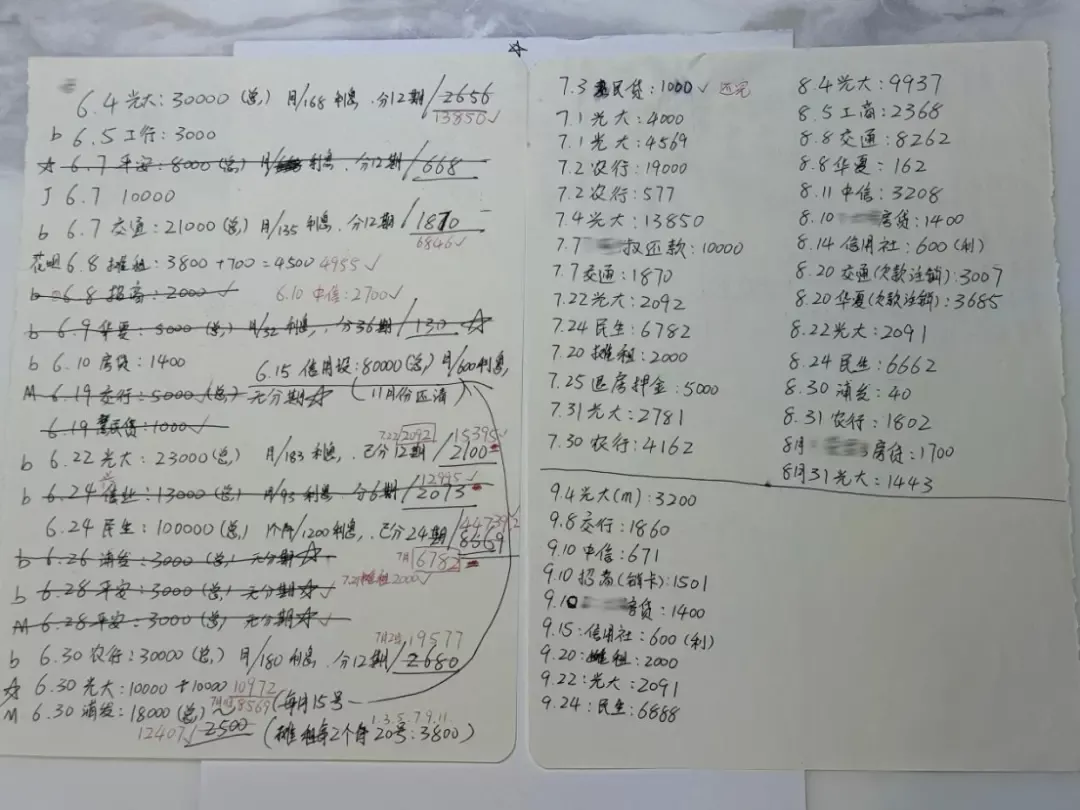 6.4 光大:30000(总) 月/168利息.分12期/2656
13850✓
b 6.5 工行:3000
☆ 6.7 平安:8000(总) 月/利息.分12期/668
J 6.7 10000
b 6.7 交通:21000(总) 月/135利息.分12期/1870
6846✓
花呗 6.8 摊租:3800+700=4500 4955✓
b 6.8 招商:2000✓ 6.10 中信:2700✓
b 6.9 华夏:5000(总) 月/32利息,分36期/130 ☆
b 6.10 房贷:1400
6.15 信用设:80000(总) 月/600利息,
M 6.19 交行:5000(总) 无分期☆ (11月份还清)
6.19 惠民贷:1000✓
7.22/2092 15395✓
b 6.22 光大:23000(总) 月/183利息,已分12期/2100
12995✓
b 6.24 信业:13000(总) 月/93利息.分6期/2073
6.24 民生:100000(总) 1个月/1200利息,已分24期/8669
b 6.26 浦发:3000(总) 无分期☆
7月 6782
b 6.28 平安:3000(总) 无分期☆✓ 摊租2000✓
M 6.28 平安:3000(总) 无分期☆✓
19577
b 6.30 农行:30000(总) 月/180利息.分12期/2680
☆ 6.30 光大:10000+10000 10972
M 6.30 浦发:18000(总) 8569 (每月15号
12407✓ 2500 1.3.5.7.9.11.
(摊租每2个月20号:3800)
☆
7.3 惠民贷:1000✓ 还完
7.1 光大:4000
7.1 光大:4569
7.2 农行:19000
7.2 农行:577
7.4 光大:13850
7.7 叔还款:10000
7.7 交通:1870
7.22 光大:2092
7.24 民生:6782
7.20 摊租:2000
7.25 退房押金:5000
7.31 光大:2781
7.30 农行:4162
8.4 光大:9937
8.5 工商:2368
8.8 交通:8262
8.8 华夏:162
8.11 中信:3208
8.10 房贷:1400
8.14 信用社:600(利)
8.20 交通(欠款注销):3007
8.20 华夏(欠款注销):3685
8.22 光大:2091
8.24 民生:6662
8.30 浦发:40
8.31 农行:1802
8月 房贷:1700
8月31 光大:1443
9.4 光大(m):3200
9.8 交行:1860
9.10 中信:671
9.10 招商(销卡):1501
9.10 房贷:1400
9.15:信用社:600(利)
9.20:摊租:2000
9.22:光大:2091
9.24:民生:6888